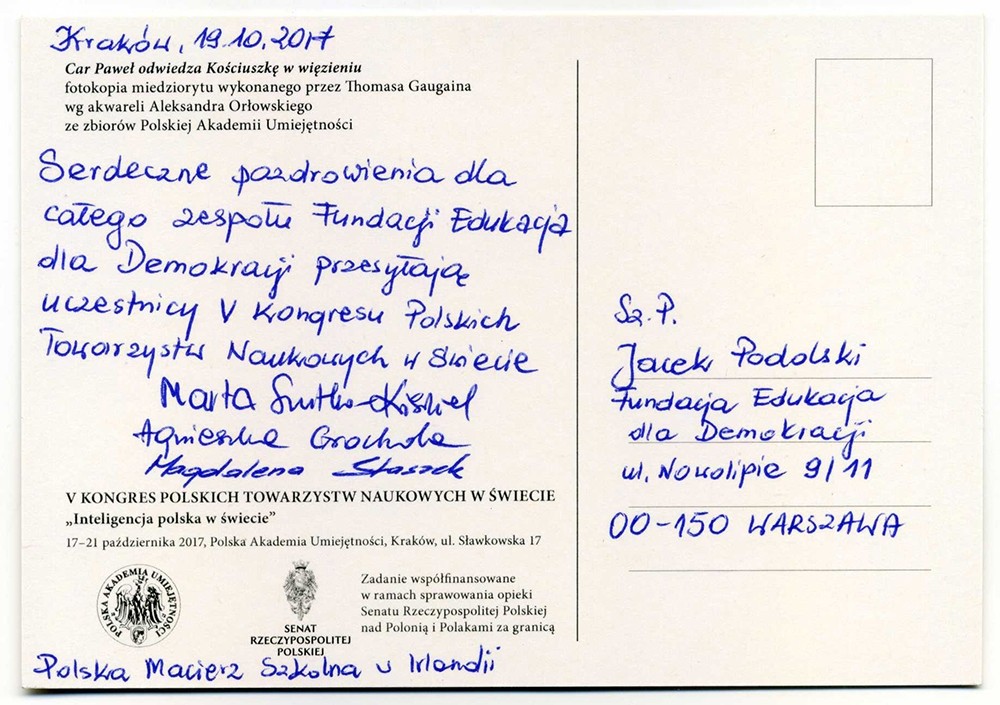 Kraków, 19.10.2017
Car Paweł odwiedza Kościuszkę w więzieniu
fotokopia miedziorytu wykonanego przez Thomasa Gaugaina
wg akwareli Aleksandra Orłowskiego
ze zbiorów Polskiej Akademii Umiejętności
Serdeczne pozdrowienia dla
całego zespołu Fundacji Edukacja
dla Demokracji przesyłają
uczestnicy V Kongresu Polskich
Towarzystw Naukowych w Świecie
Marta
Agnieszka Grochola
Magdalena Staszek
V KONGRES POLSKICH TOWARZYSTW NAUKOWYCH W ŚWIECIE
„Inteligencja polska w świecie”
17–21 października 2017, Polska Akademia Umiejętności, Kraków, ul. Sławkowska 17
POLSKA AKADEMIA UMIEJĘTNOŚCI
SENAT
RZECZYPOSPOLITEJ
POLSKIEJ
Zadanie współfinansowane
w ramach sprawowania opieki
Senatu Rzeczypospolitej Polskiej
nad Polonią i Polakami za granicą
Polska Macierz Szkolna w Irlandii
Sz. P.
Jacek Podolski
Fundacja Edukacja
dla Demokracji
ul. Nowolipie 9/11
00-150 WARSZAWA